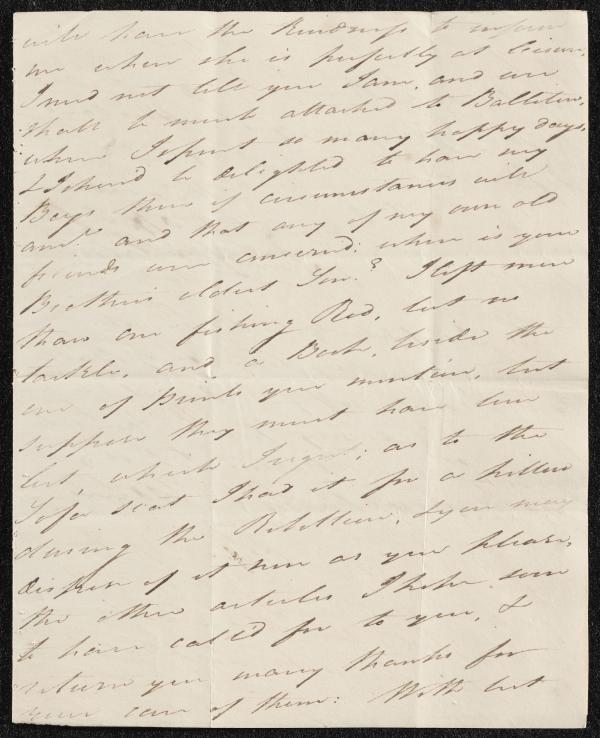 will have the kindness to inform
me where she is perfectly at leisure,
I need not tell you I am, and ever
shall be much attached to
where I spent so many happy days,
& I should be delighted to have my
Boys there if circumstances will
and that any of my own old
friends were concerned: where is your
Brothers eldest Son? I left more
than one fishing Rod, but no
tackle, and a Book, beside the
one of prints you mention, but
suppose they must have been
lost, which I regret; as to the
Sofa seat I had it for a pillow
during the Rebellion, & you may
dispose of it now as you please,
the other articles I hope soon
to have call'd for to you, &
return you many thanks for
your care of them: With best